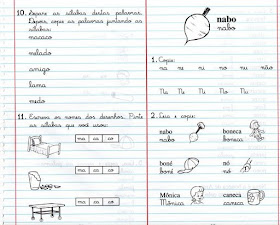 10. Separe as sílabas destas palavras.
Depois, copie as palavras juntando as
sílabas:
macaco
melado
amigo
lama
medo
11. Escreva os nomes dos desenhos. Pinte
as sílabas que você usou:
ma ca co
ma ca co
ma ca co
nabo
nabo
1. Copie:
na ne ni no nu não
Na Ne Ni No Nu
2. Leia e copie:
nabo boneca
nabo boneca
boné nó
boné nó
Mônica caneca
Mônica caneca